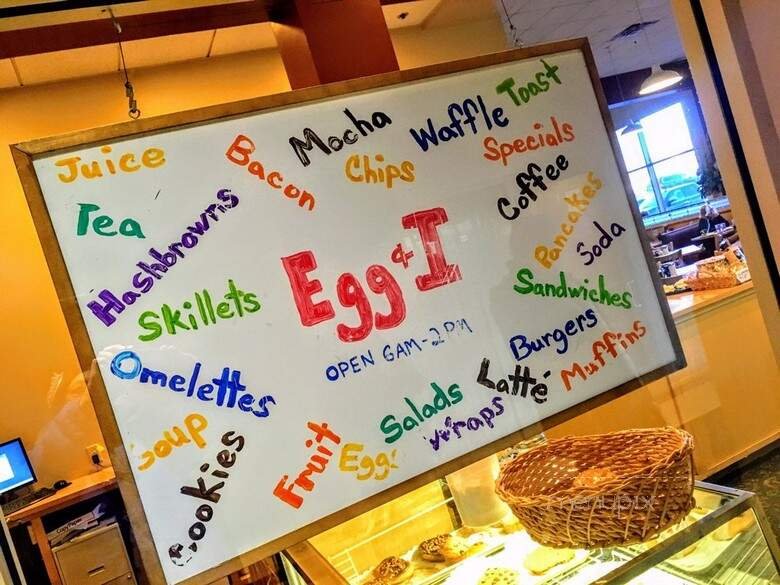 Juice
Bacon
Mocha
Chips
Waffle
Toast
Specials
Tea
Hashbrowns
Coffee
Pancakes
Soda
Skillets
Egg & I
OPEN 6AM-2PM
Sandwiches
Burgers
Muffins
Omelettes
Latte
Salads
Wraps
Soup
Cookies
Fruit
Eggs
menupix